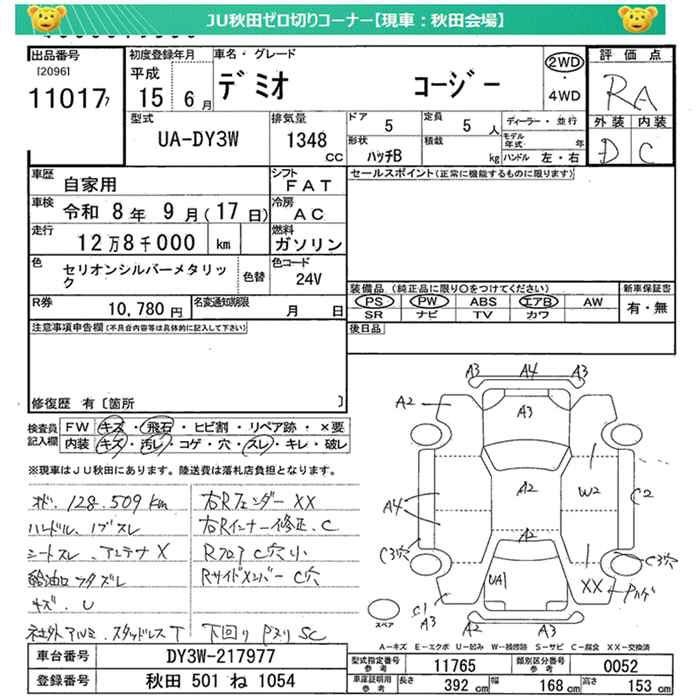 JU秋田ゼロ切りコーナー【現車：秋田会場】
出品番号 初度登録年月 車名・グレード 評価点
[2096] 平成 デミオ コージー 2WD・4WD RA
11017ｸ 15年 6月
型式 排気量 ドア 5 定員 5人 ディーラー・並行 外装 内装
UA-DY3W 1348cc 形状 ハッチB 積載 kg モデル年式 年 ハンドル 左・右 D C
車歴 自家用 シフト FAT セールスポイント(正常に機能するものに限ります)
車検 令和 8年 9月(17日) 冷房 AC
走行 12万8千000 km 燃料 ガソリン
色 セリオンシルバーメタリック 色替 色コード 24V
装備品 (純正品に限り○をつけてください) 新車保証書
PS PW ABS エアB AW 有・無
SR ナビ TV カワ
R券 10,780円 名変通知期限 月 日
後日品
注意事項申告欄(不具合内容等は具体的に記入して下さい)
修復歴 有〔箇所 〕
検査員記入欄 FW キズ・飛石・ヒビ割・リペア跡・×要
内装 キズ・汚レ・コゲ・穴・スレ・キレ・破レ
※現車はJU秋田にあります。陸送費は落札店負担となります。
メーター 128,509km
ハンドル、ノブスレ
シートスレ、アンテナX
給油口フタズレ
キズ、U
社外アルミ、スタッドレスT
右RフェンダーXX
右Rインナー修正、C
RフロアC穴小
RサイドメンバーC穴
下回りPヌリSC
A3 A4 A3
A2 A3
A4 A2 W2 C2
A2
C3穴 C3穴
UA1 XX Pハゲ
C1 A3 A2 A3
スペア
A-キズ E-エクボ U-凹み W-補修跡 S-サビ C-腐食 XX-交換済
車台番号 DY3W-217977 型式指定番号 参考 11765 類別区分番号 参考 0052
登録番号 秋田 501 ね 1054 車庫証明用 参考 長さ 392cm 幅 168cm 高さ 153cm